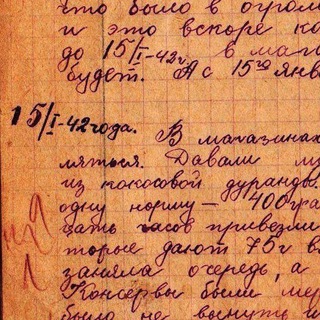 что было в огром
и это вскоре ко
до 15/I-42г. в мага
будет. А с 15го янв
15/I-42года. В магазинах
мяться. Давали м
из кокосовой дуранды.
одну норму — 400гра
цать часов привезли
торые дают 75г в
заняла очередь, а
Консервы были мер
было не воткнуть и